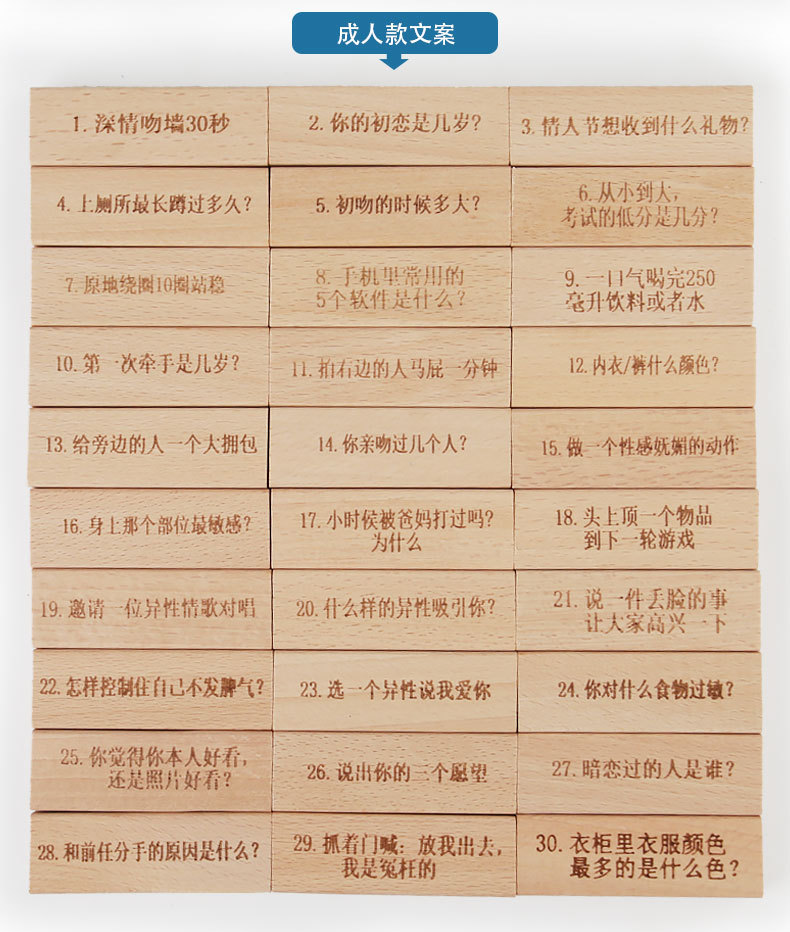 成人款文案
1. 深情吻墙30秒
2. 你的初恋是几岁?
3. 情人节想收到什么礼物?
4. 上厕所最长蹲过多久?
5. 初吻的时候多大?
6. 从小到大,
考试的低分是几分?
7. 原地绕圈10圈站稳
8. 手机里常用的
5个软件是什么?
9. 一口气喝完250
毫升饮料或者水
10. 第一次牵手是几岁?
11. 拍右边的人马屁一分钟
12. 内衣/裤什么颜色?
13. 给旁边的人一个大拥包
14. 你亲吻过几个人?
15. 做一个性感妩媚的动作
16. 身上那个部位最敏感?
17. 小时候被爸妈打过吗?
为什么
18. 头上顶一个物品
到下一轮游戏
19. 邀请一位异性情歌对唱
20. 什么样的异性吸引你?
21. 说一件丢脸的事
让大家高兴一下
22. 怎样控制住自己不发脾气?
23. 选一个异性说我爱你
24. 你对什么食物过敏?
25. 你觉得你本人好看,
还是照片好看?
26. 说出你的三个愿望
27. 暗恋过的人是谁?
28. 和前任分手的原因是什么?
29. 抓着门喊: 放我出去,
我是冤枉的
30. 衣柜里衣服颜色
最多的是什么色?